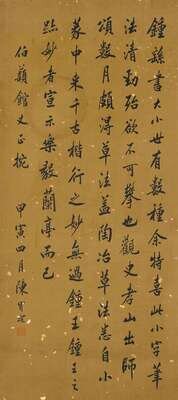 鍾繇書大小世有數種余特喜此小字筆
法清勁殆欲不可攀也觀史孝山出師
頌數月頗得草法蓋陶冶草法悉自小
篆中來千古楷行之妙無過鍾王鍾王之
跡妙者宣示樂毅蘭亭而已
伯蘋館丈正
甲寅四月陳